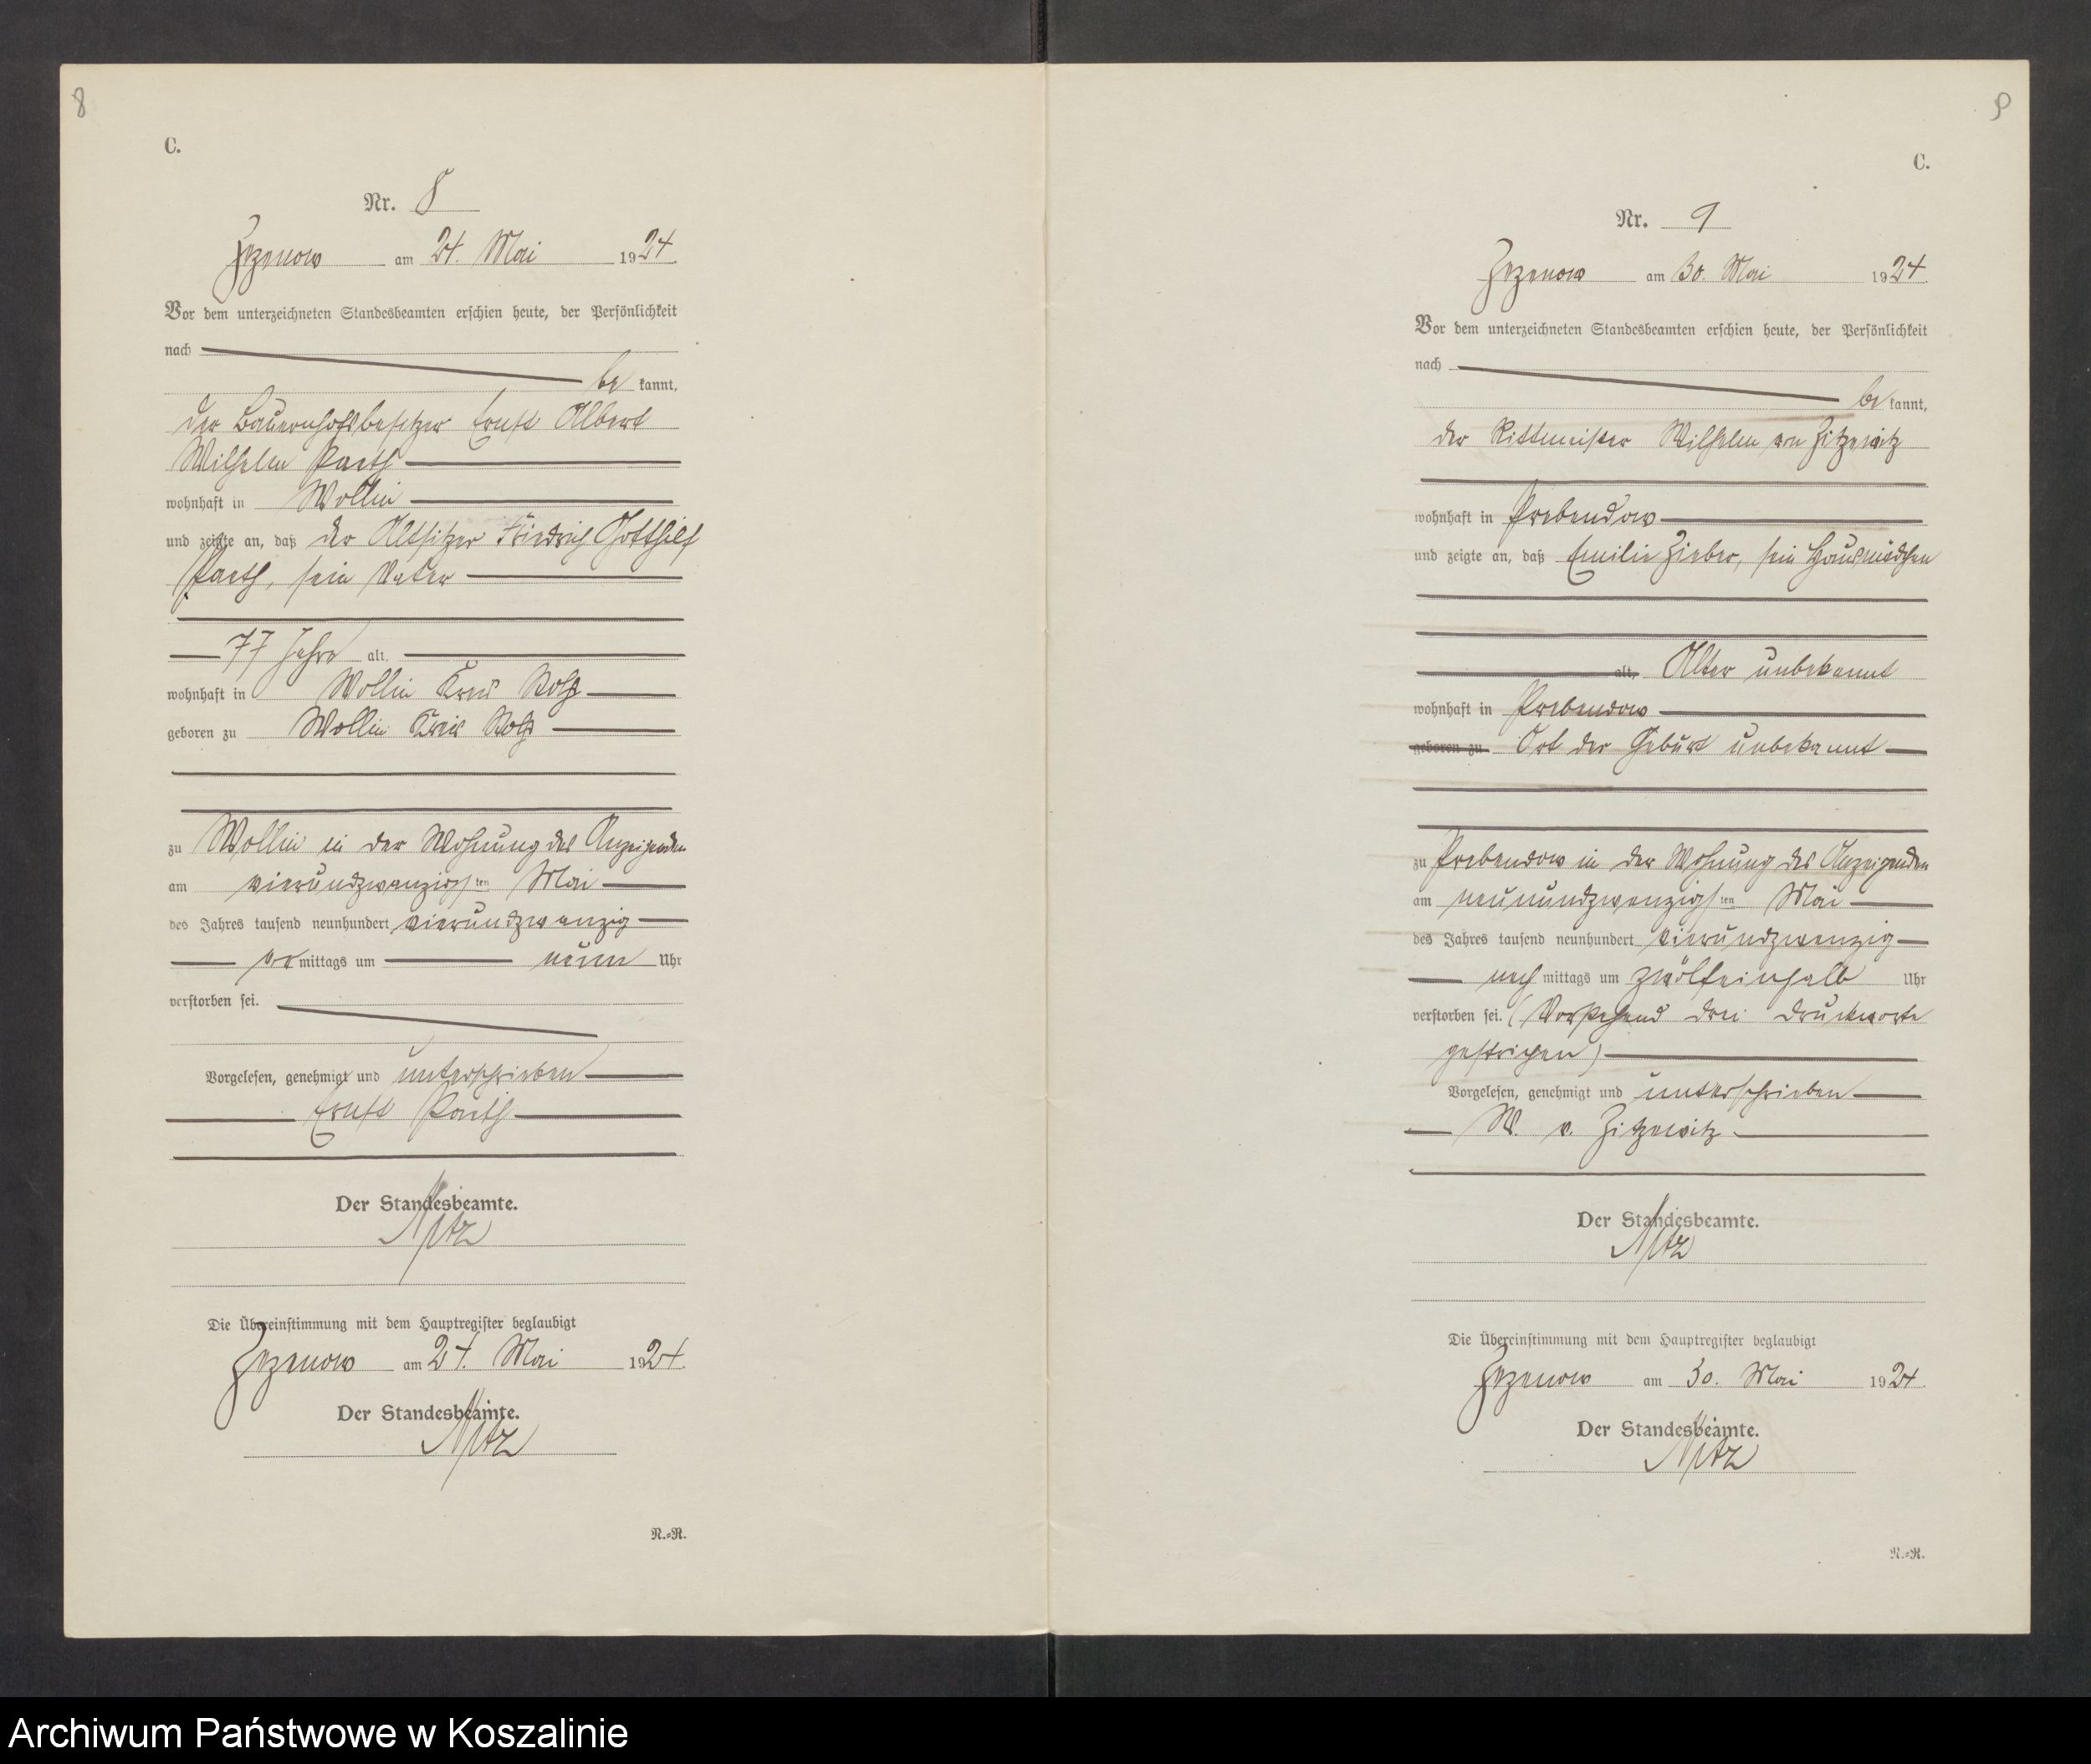 8
C.
Nr. 8
Zezenow am 24. Mai 1924
Vor dem unterzeichneten Standesbeamten erschien heute, der Persönlichkeit
nach
be kannt,
der Bauernhofsbesitzer Ernst Albert
Wilhelm Paeth
wohnhaft in Wollin
und zeigte an, daß der Altsitzer Friedrich Gotthilf
Paeth, sein Vater
77 Jahre alt,
wohnhaft in Wollin Kreis Stolp
geboren zu Wollin Kreis Stolp
zu Wollin in der Wohnung des Anzeigenden
am vierundzwanzigsten Mai
des Jahres tausend neunhundert vierundzwanzig
vor mittags um neun Uhr
verstorben sei.
Vorgelesen, genehmigt und unterschrieben
Ernst Paeth
Der Standesbeamte.
Die Übereinstimmung mit dem Hauptregister beglaubigt
Zezenow am 24. Mai 1924.
Der Standesbeamte.
N.=R.
9
C.
Nr. 9
Zezenow am 30. Mai 1924
Vor dem unterzeichneten Standesbeamten erschien heute, der Persönlichkeit
nach
be kannt,
der Rittmeister Wilhelm von Zitzewitz
wohnhaft in Prebendow
und zeigte an, daß Emilie Zieber, sein Hausmädchen
alt, Alter unbekannt
wohnhaft in Prebendow
geboren zu Ort der Geburt unbekannt
zu Prebendow in der Wohnung des Anzeigenden
am neunundzwanzigsten Mai
des Jahres tausend neunhundert vierundzwanzig
nach mittags um zwölfeinhalb Uhr
verstorben sei. (Vorstehend drei Druckworte
gestrichen)
Vorgelesen, genehmigt und unterschrieben
W. v. Zitzewitz
Der Standesbeamte.
Die Übereinstimmung mit dem Hauptregister beglaubigt
Zezenow am 30. Mai 1924
Der Standesbeamte.
N.=R.
Archiwum Państwowe w Koszalinie